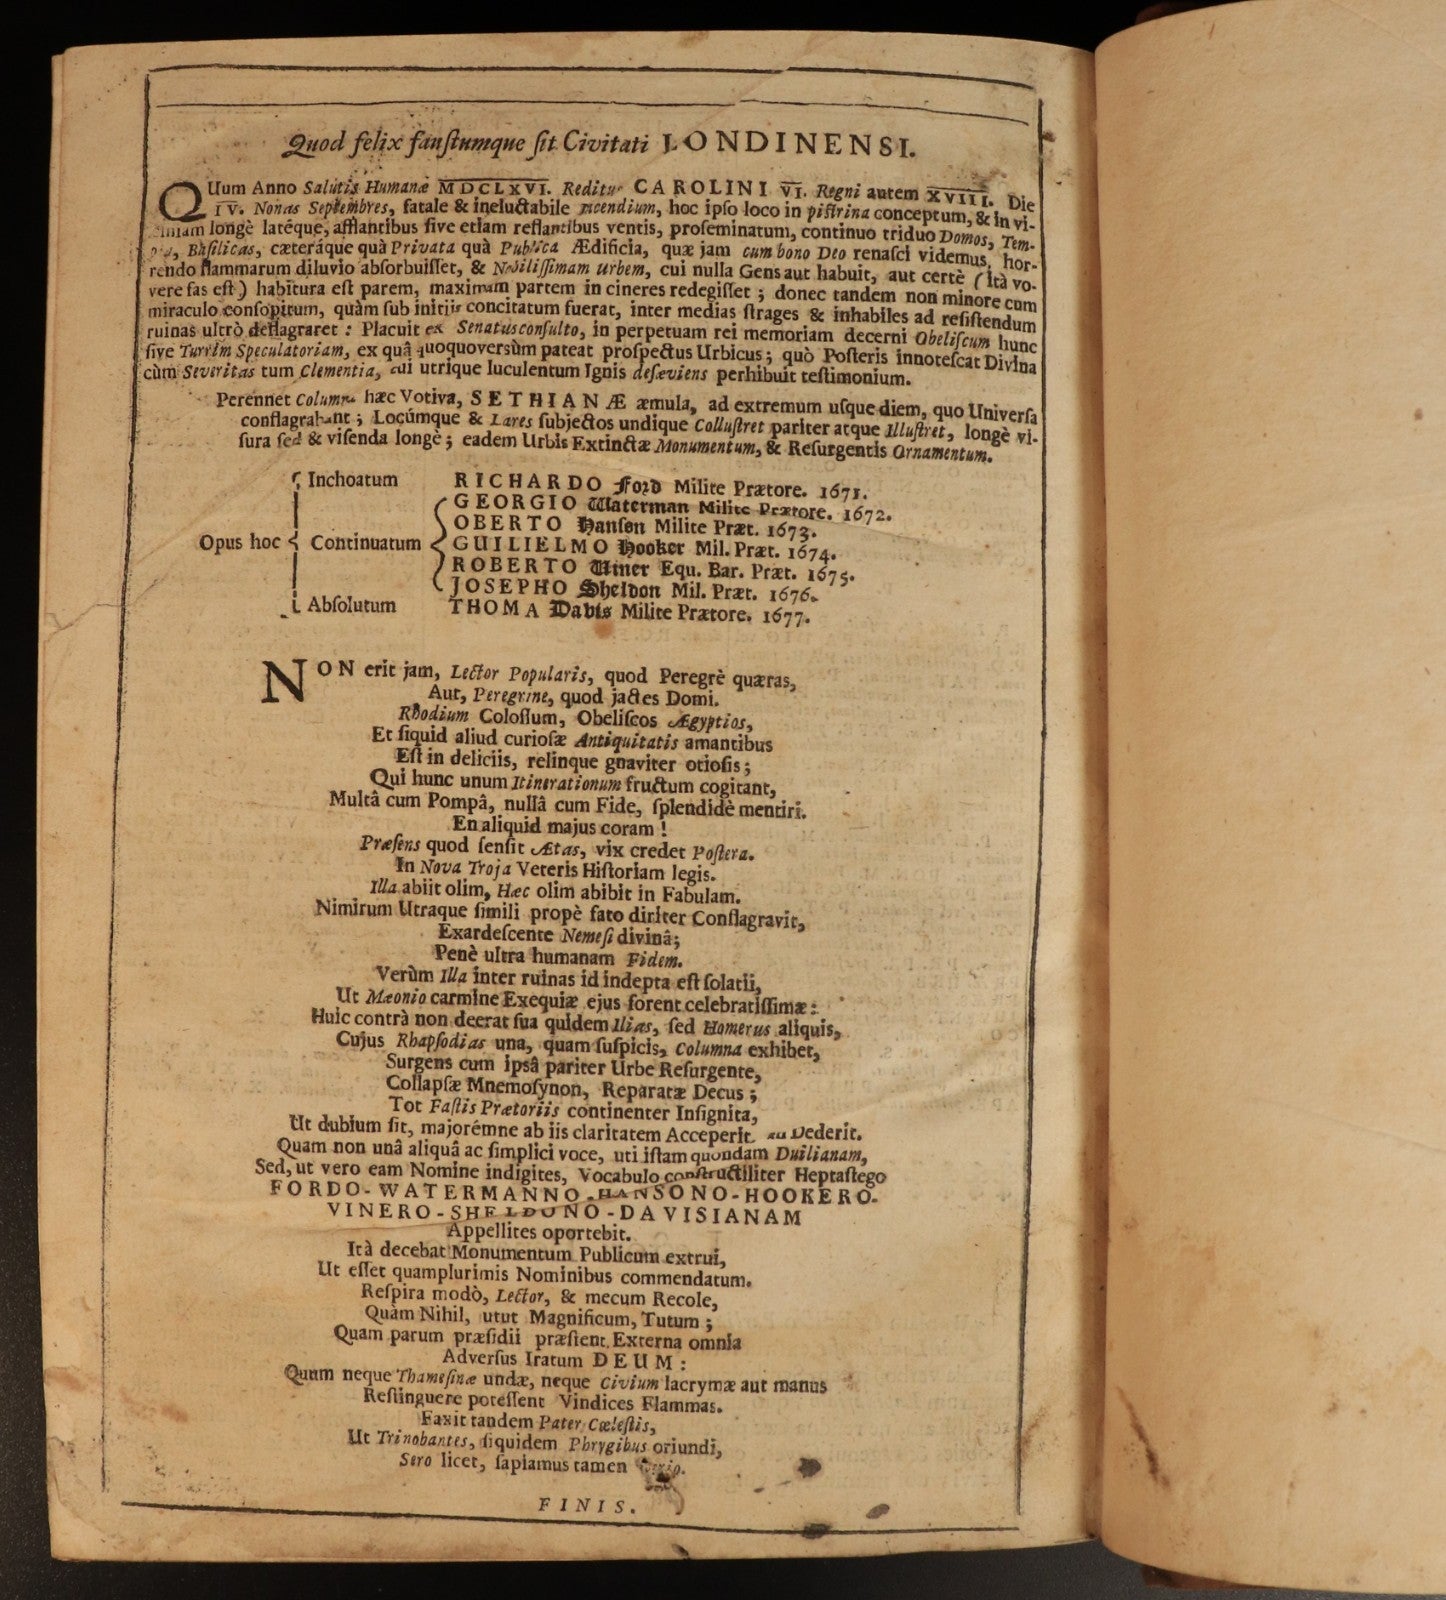 Quod felix fauſtumque ſit Civitati LONDINENSI.
QUum Anno Salutis Humanæ MDCLXVI. Reditus CAROLINI VI. Regni autem XVIII. Die
IV. Nonas Septembres, fatale & ineluctabile incendium, hoc ipſo loco in piſtrina conceptum, & in vi-
longè latéque, afflantibus ſive etiam reflantibus ventis, proſeminatum, continuo triduo Domos, Tem-
Baſilicas, cæteráque quà Privata quà Publica Ædificia, quæ jam cum bono Deo renaſci videmus, hor-
rendo flammarum diluvio abſorbuiſſet, & Nobiliſſimam Urbem, cui nulla Gens aut habuit, aut certè (ità vo-
vere fas eſt) habitura eſt parem, maximam partem in cineres redegiſſet; donec tandem non minore cum
miraculo conſopitum, quàm ſub initiis concitatum fuerat, inter medias ſtrages & inhabiles ad reſiſtendum
ruinas ultrò deflagraret: Placuit ex Senatusconſulto, in perpetuam rei memoriam decerni Obeliſcum hunc
ſive Turrim Speculatoriam, ex quâ quoquoversùm pateat proſpectus Urbicus; quò Poſteris innoteſcat Divina
cùm Severitas tum Clementia, cui utrique luculentum Ignis deſæviens perhibuit teſtimonium.
Perennet Columna hæc Votiva, SETHIANÆ æmula, ad extremum uſque diem, quo Univerſa
conflagrabunt; Locúmque & Lares ſubjectos undique Colluſtret pariter atque Illuſtret, longè vi-
ſura ſed & viſenda longè; eadem Urbis Extinctæ Monumentum, & Reſurgentis Ornamentum.
Opus hoc
Inchoatum RICHARDO Ford Milite Prætore. 1671.
Continuatum GEORGIO Waterman Milite Prætore. 1672.
OBERTO Hanſon Milite Præt. 1673.
GUILIELMO Hooker Mil. Præt. 1674.
ROBERTO Viner Equ. Bar. Præt. 1675.
JOSEPHO Sheldon Mil. Præt. 1676.
Abſolutum THOMA Davis Milite Prætore. 1677.
NON erit jam, Lector Popularis, quod Peregrè quæras,
Aut, Peregrine, quod jactes Domi.
Rhodium Coloſſum, Obeliſcos Ægyptios,
Et ſiquid aliud curioſæ Antiquitatis amantibus
Eſt in deliciis, relinque gnaviter otioſis;
Qui hunc unum Itinerationum fructum cogitant,
Multâ cum Pompâ, nullâ cum Fide, ſplendidè mentiri.
En aliquid majus coram!
Præſens quod ſenſit Ætas, vix credet Poſtera.
In Nova Troja Veteris Hiſtoriam legis.
Illa abiit olim, Hæc olim abibit in Fabulam.
Nimirum Utraque ſimili propè fato diriter Conflagravit,
Exardeſcente Nemeſi divinâ;
Penè ultra humanam Fidem.
Verùm Illa inter ruinas id indepta eſt ſolatii,
Ut Mæonio carmine Exequiæ ejus forent celebratiſſimæ:
Huic contrà non deerat ſua quidem Ilias, ſed Homerus aliquis,
Cujus Rhapſodias una, quam ſuſpicis, Columna exhibet,
Surgens cum ipsâ pariter Urbe Reſurgente,
Collapſæ Mnemoſynon, Reparatæ Decus;
Tot Faſtis Prætoriis continenter Inſignita,
Ut dubium ſit, majorémne ab iis claritatem Acceperit, an Dederit.
Quam non unâ aliquâ ac ſimplici voce, uti iſtam quondam Duilianam,
Sed, ut vero eam Nomine indigites, Vocabulo conſtructiliter Heptaſtego
FORDO-WATERMANNO-HANSONO-HOOKERO-
VINERO-SHELDONO-DAVISIANAM
Appellites oportebit.
Ità decebat Monumentum Publicum extrui,
Ut eſſet quamplurimis Nominibus commendatum.
Reſpira modò, Lector, & mecum Recole,
Quàm Nihil, utut Magnificum, Tutum;
Quam parum præſidii præſtent Externa omnia
Adverſus Iratum DEUM:
Quum neque Thameſinæ undæ, neque Civium lacrymæ aut manus
Reſtinguere poteſſent Vindices Flammas.
Faxit tandem Pater Cœleſtis,
Ut Trinobantes, ſiquidem Phrygibus oriundi,
Sero licet, ſapiamus tamen
FINIS.